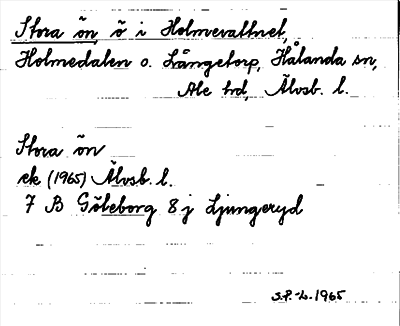 Stora ön, ö i Holmevattnet,
Holmedalen o. Långetorp, Hålanda sn,
Ale hd, Älvsb. l.
Stora ön
ek (1965) Älvsb. l.
7 B Göteborg 8 j Ljungeryd
S.P.-L. 1965